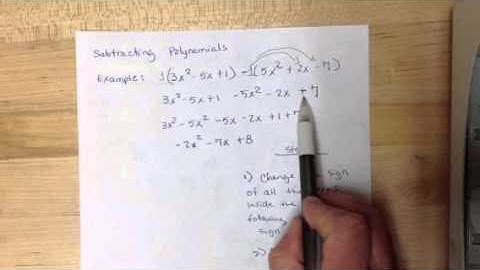 Subtracting Polynomials
Example: 1(3x² - 5x + 1) - 1(5x² + 2x - 7)
3x² - 5x + 1 - 5x² - 2x + 7
3x² - 5x² - 5x - 2x + 1 + 7
-2x² - 7x + 8
1) Change sign
of all the
inside the
following
sign
2)